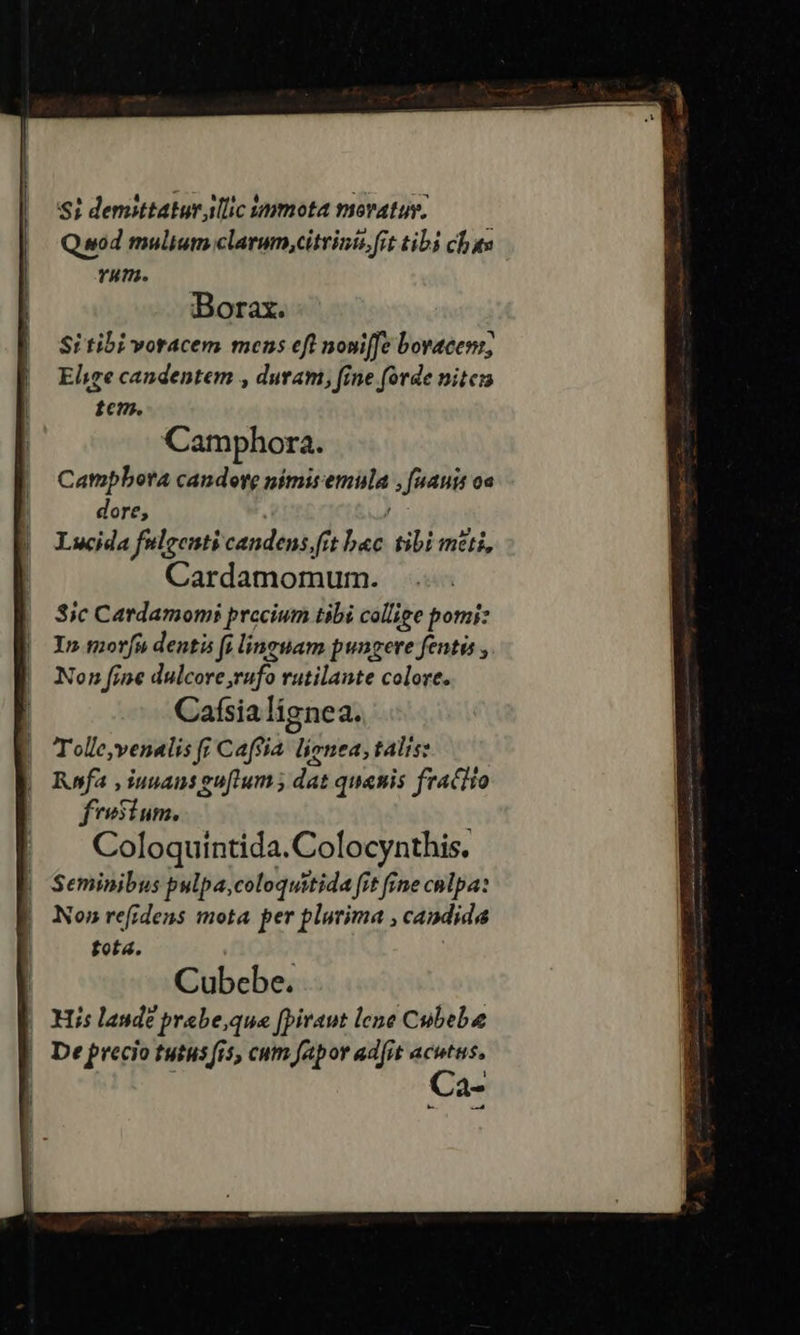 Si demittatur,illic immota moratur.
Quod multum clarum,citrinũ,ſit tibi cha⸗
rum.
Borax.
Si tibi voracem mens eſt nouiſſe boracem,
Elige candentem , duram, ſine ſorde niten
tem.
Camphora.
Camphora candore nimis emula , ſuauis o⸗
dore,
Lucida fulgenti candens,ſit hæc tibi mẽti.
Cardamomum.
Sic Cardamomi precium tibi collige pomi:
In morſu dentis ſi linguam pungere ſentis ,
Non ſine dulcore,rufo rutilante colore.
Caſsia lignea.
Tolle,venalis ſi Caſſia lignea, talis:
Rufa , iuuans guſtum ; dat quauis fractio
fruſtum.
Coloquintida.Colocynthis.
Seminibus pulpa,coloquĩtida ſit ſine culpa:
Non reſidens mota per plurima , candida
tota.
Cubebe.
His laudẽ præbe,quæ ſpirant lene Cubebæ
De precio tutus ſis, cum ſapor adſit acutus.
Ca-